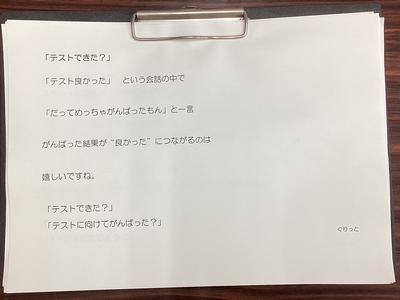 「テストできた？」
「テスト良かった」　という会話の中で
「だってめっちゃがんばったもん」と一言
がんばった結果が“良かった”につながるのは
嬉しいですね。
「テストできた？」
「テストに向けてがんばった？」
ぐりっと